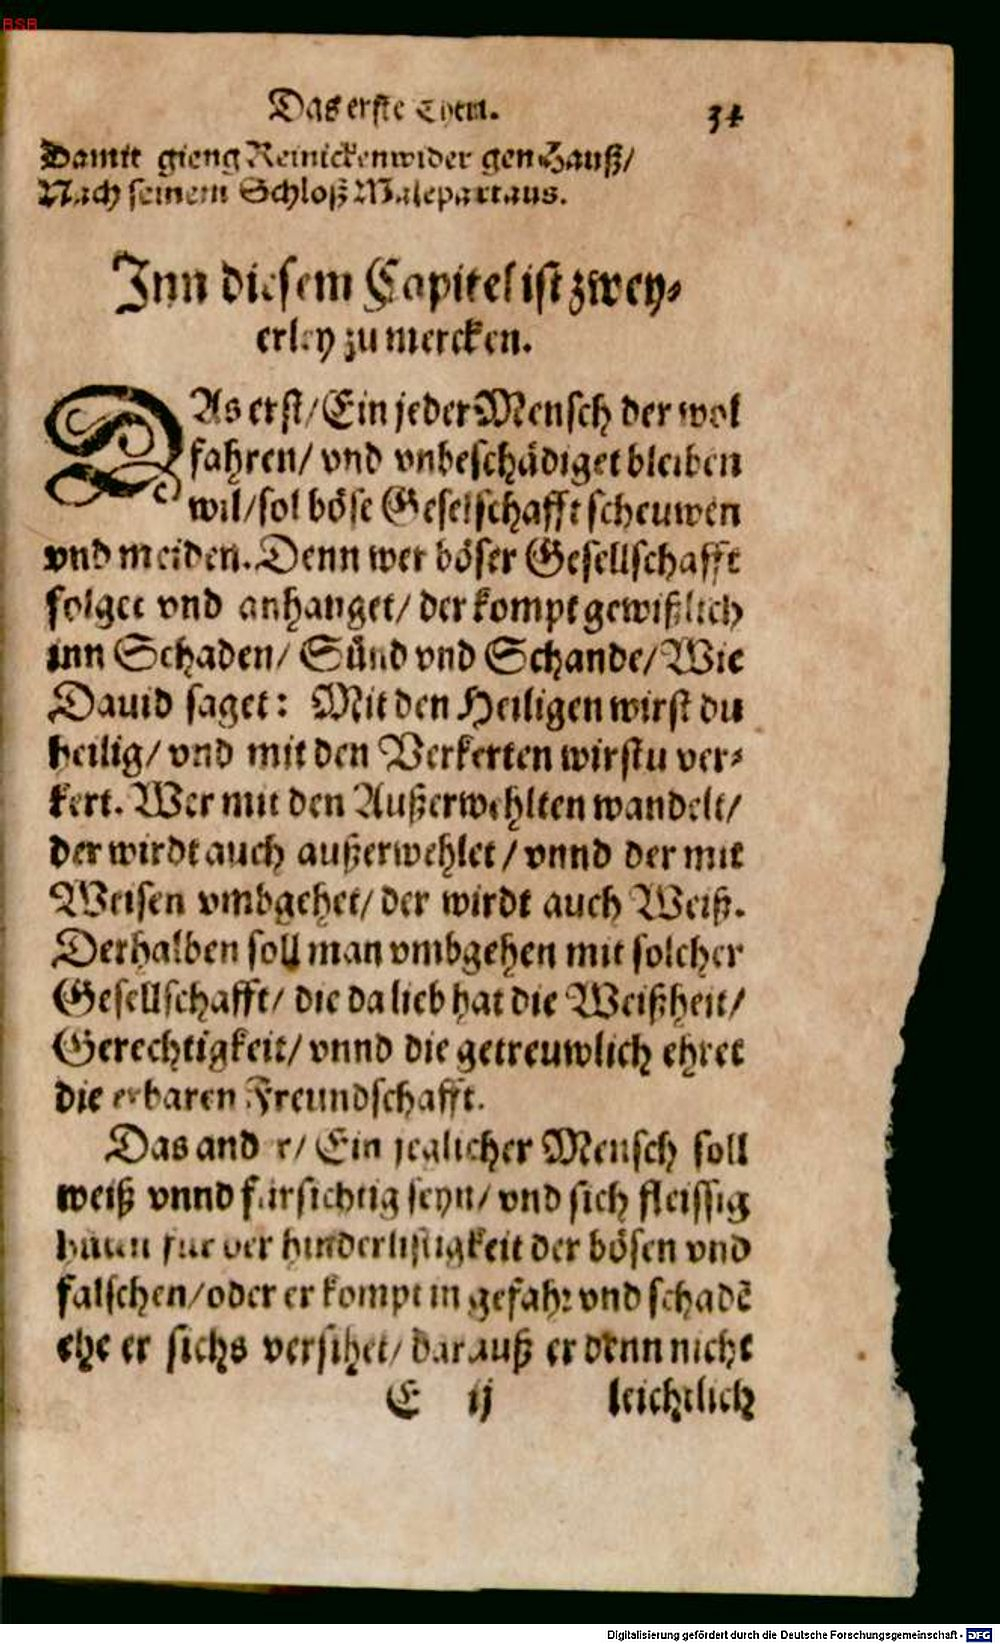 BSB
Das erste Theil. 34
Damit gieng Reinicken wider gen Hauß/
Nach seinem Schloß Malepartaus.
Inn diesem Capitel ist zwey⸗
erley zu mercken.
DAs erst/ Ein jeder Mensch der wol
fahren/ vnd vnbeschädiget bleiben
wil/ sol böse Geselschafft scheuwen
vnd meiden. Denn wer böser Gesellschafft
folget vnd anhanget/ der kompt gewißlich
inn Schaden/ Sünd vnd Schande/ Wie
Dauid saget: Mit den Heiligen wirst du
heilig/ vnd mit den Verkerten wirstu ver⸗
kert. Wer mit den Außerwehlten wandelt/
der wirdt auch außerwehlet/ vnnd der mit
Weisen vmbgehet/ der wirdt auch Weiß.
Derhalben soll man vmbgehen mit solcher
Gesellschafft/ die da lieb hat die Weißheit/
Gerechtigkeit/ vnnd die getreuwlich ehret
die erbaren Freundschafft.
Das ander/ Ein jeglicher Mensch soll
weiß vnnd fürsichtig seyn/ vnd sich fleissig
hüten für der hinderlistigkeit der bösen vnd
falschen/ oder er kompt in gefahr vnd schadē
ehe er sichs versihet/ darauß er denn nicht
E ij leichtlich
Digitalisierung gefördert durch die Deutsche Forschungsgemeinschaft - DFG